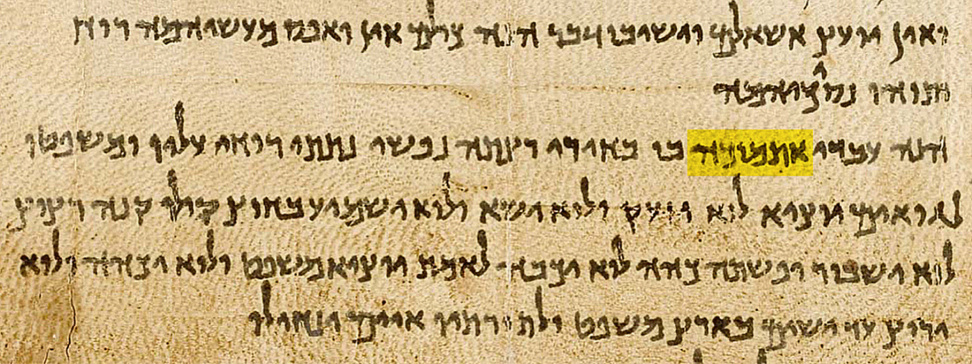 ואין יועץ אשאלם וישיבו דבר הנה כולם אין ואפס מעשיהמה רוח
ותוהו נסכיהמה
הנה עבדי אתמוכה בו בחירי רצתה נפשי נתתי רוחי עליו ומשפטו
לגואים יוציא לוא יזעק ולוא ישא ולוא ישמיע בחוץ קולו קנה רצוץ
לוא ישבור ופשתה כהה לוא יכבה לאמת יוציא משפט ולוא יכהה ולוא
ירוץ עד ישים בארץ משפט ולתורתיו איים ינחילו